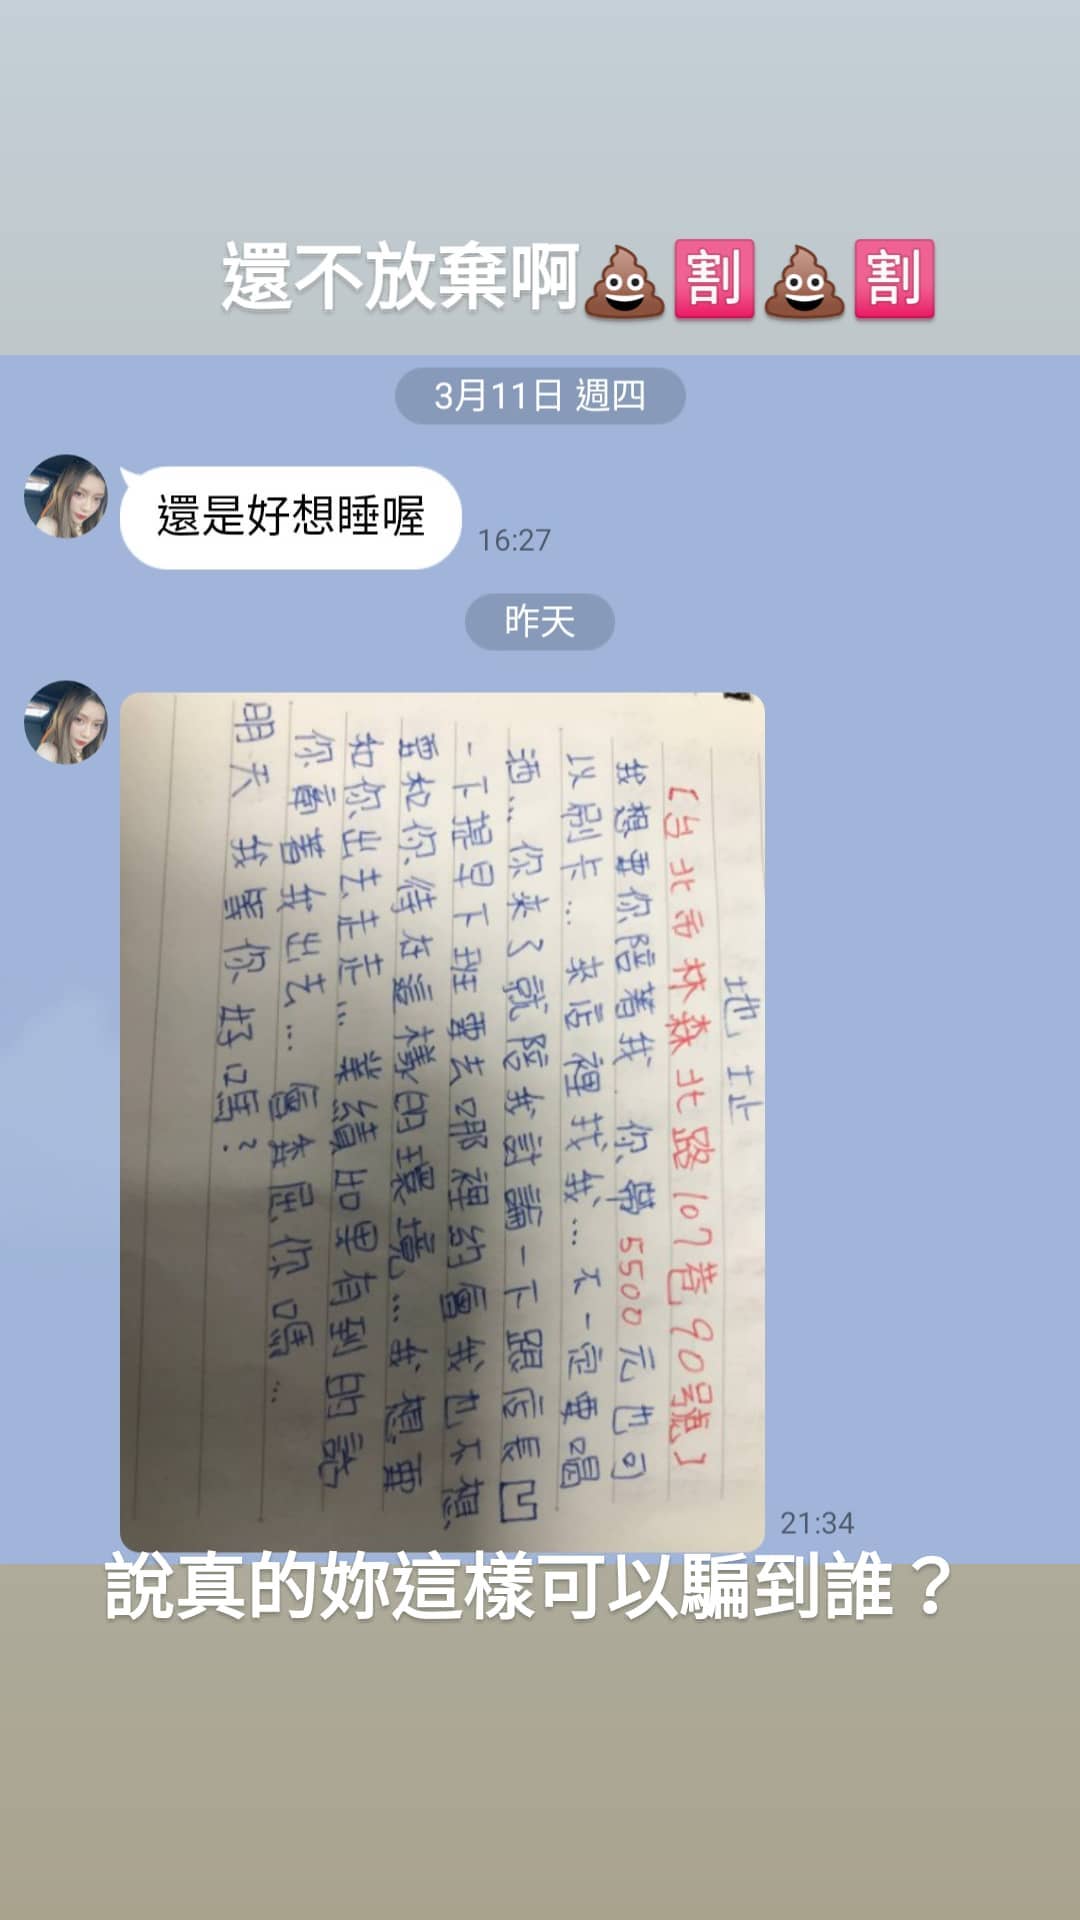 還不放棄啊💩🈹💩🈹
3月11日 週四
還是好想睡喔
16:27
昨天
地址
【台北市林森北路107巷90號】
我想要你陪著我. 你帶5500元也可
以刷卡... 來店裡找我... 不一定要喝
酒... 你來了就陪我討論一下跟店長凹
一下提早下班要去哪裡約會我也不想
要和你待在這樣的環境...我想要
和你出去走走... 業績如果有到的話
你會著我出去... 會委屈你嗎...
明天 我等你好嗎?
21:34
說真的妳這樣可以騙到誰？